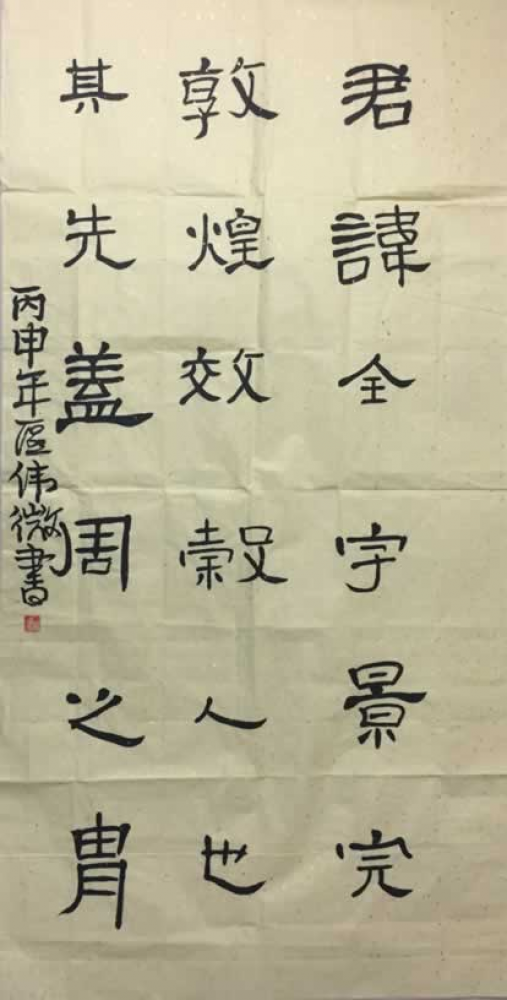 君諱全字景完
敦煌效穀人也
其先盖周之胄
丙申年區伟微書